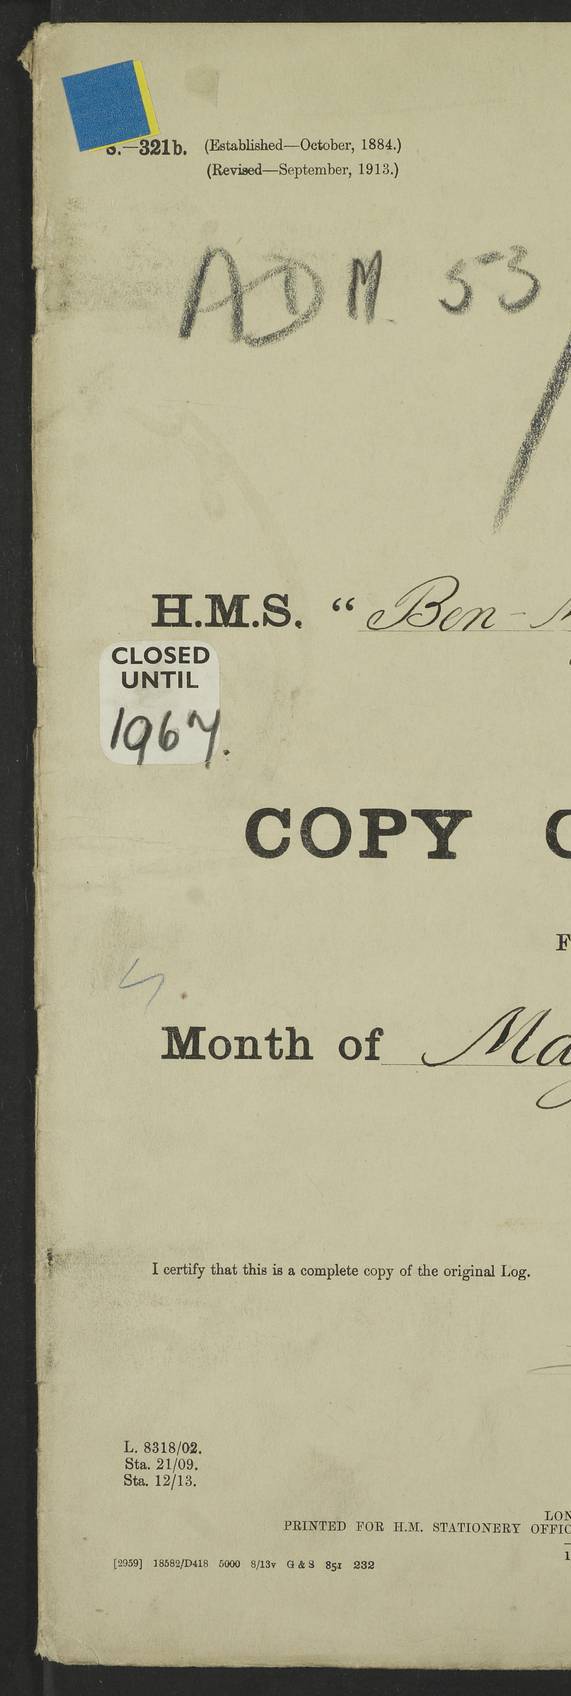 S.—321b. (Established—October, 1884.)
(Revised—September, 1913.)
ADM 53 /
H.M.S. “ Ben-
CLOSED
UNTIL
1967.
COPY
F
Month of Ma
I certify that this is a complete copy of the original Log.
L. 8318/02.
Sta. 21/09.
Sta. 12/13.
LON
PRINTED FOR H.M. STATIONERY OFFIC
1
[2959] 18582/D418 5000 8/13v G & S 851 232